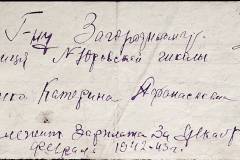 Г-ну Загородному
ица N Юровской школы
ко Катерина Афанасьевна
лежит Зарплата За Декаб
февраль 1942-43 г.